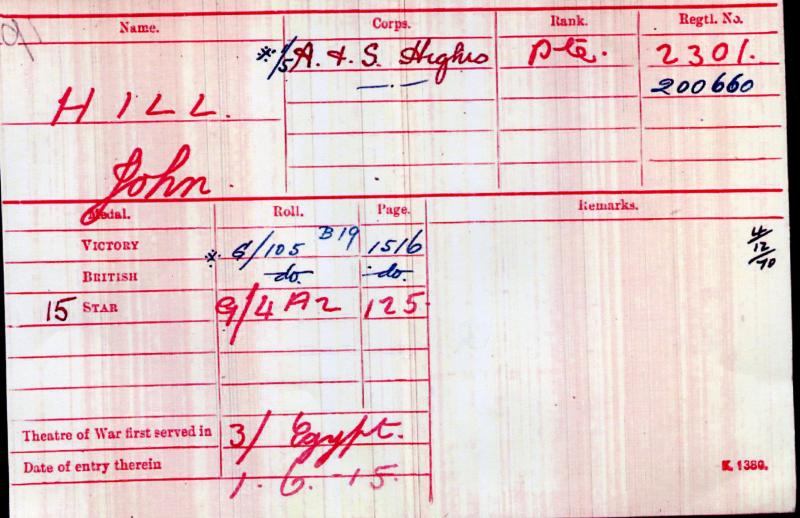 Name. Corps. Rank. Regtl. No.
* 1/5 A. & S. Highrs Pte. 2301.
HILL. —.— 200660
John.
Medal. Roll. Page. Remarks.
VICTORY * G/105 B19 1516
BRITISH do. do.
15 STAR G/4A2 125.
4/12/70
Theatre of War first served in 3/ Egypt.
Date of entry therein 1. 6. 15.
K. 1380.